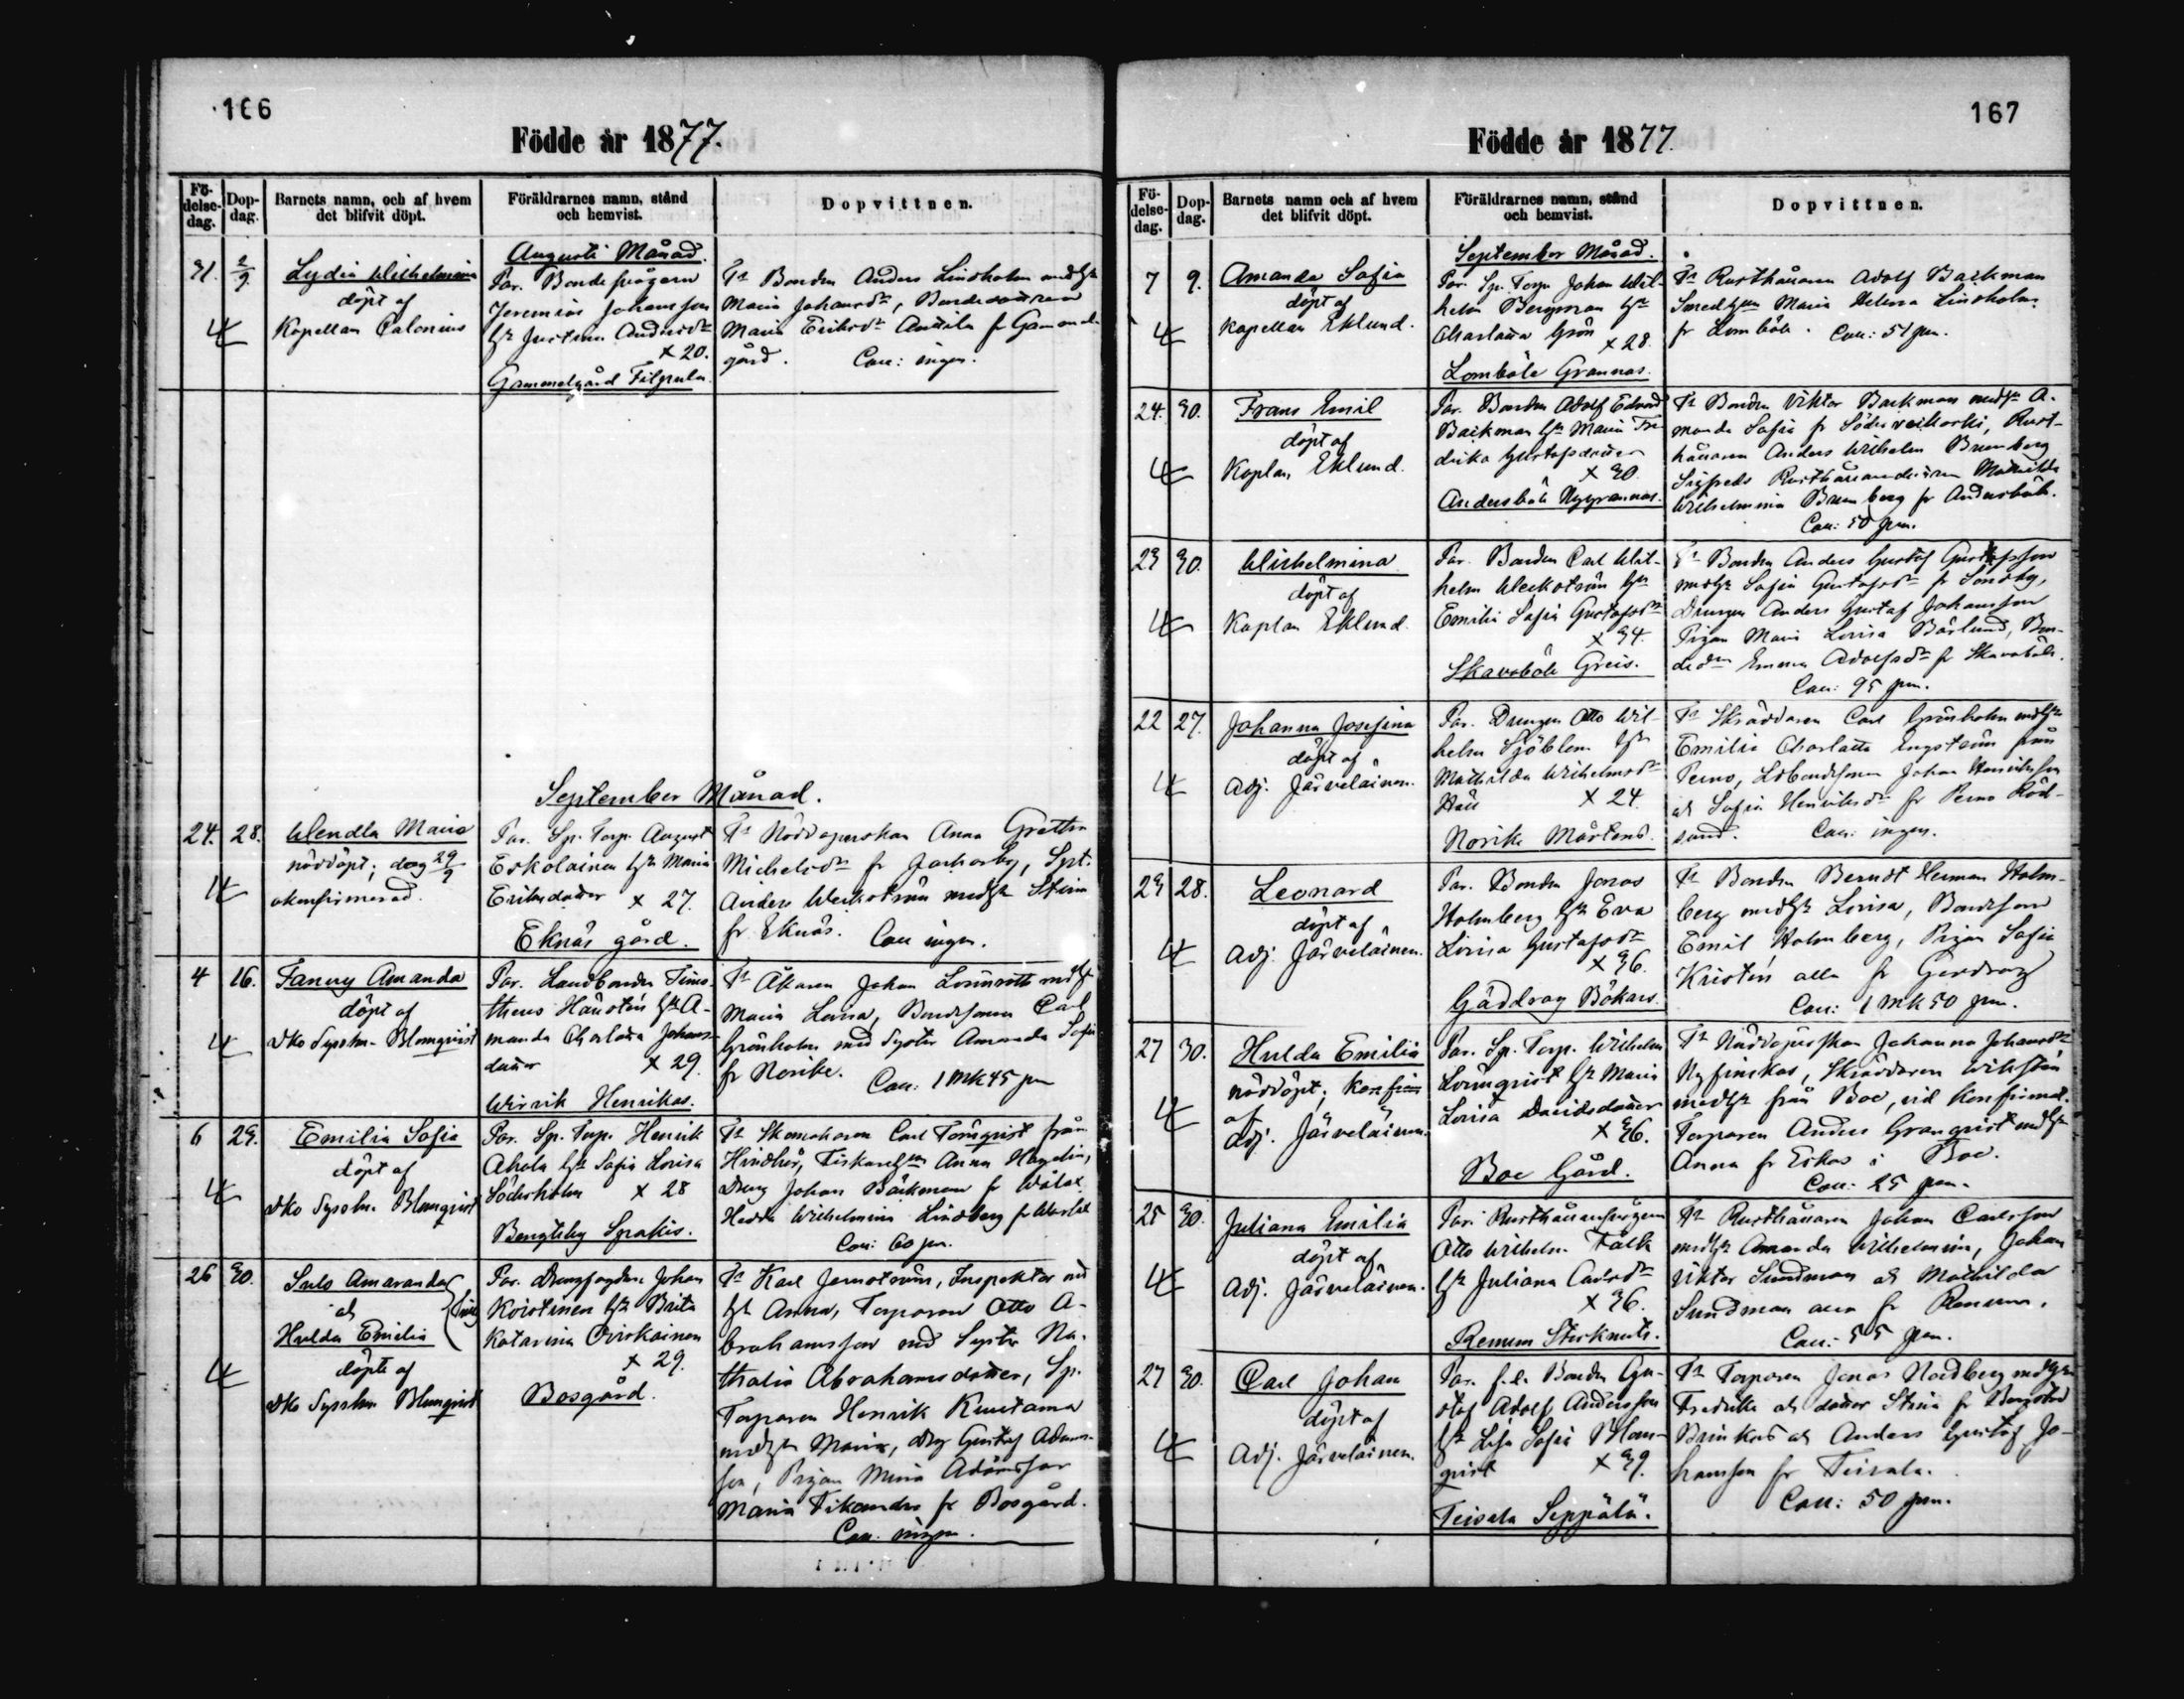 166
Födde år 1877.
Fö-
delse-
dag.
Dop-
dag.
Barnets namn, och af hvem
det blifvit döpt.
Föräldrarnes namn, stånd
och hemvist.
Dopvittnen.
Augusti Månad.
31. 2/9
Lydia Wilhelmina
döpt af
Kapellan Calonius
Par. Bonde
Jeremias Johansson
hst Justina Andersdr
x 20.
Gammelgård Filpula.
Fr Bonden Anders Lindholm medhst
Maria Johansdr, Bondedottren
Maria Eriksdr Anttila fr Gammel-
gård. Coll: ingen.
September Månad.
24. 28.
Wendla Maria
nöddöpt; dog 29/9
okonfirmerad.
Par. Sp. Torp. August
Eskolainen hst Maria
Eriksdotter x 27.
Eknäs gård.
Fr Anna Gretha
Michelsdr fr Jackarby, Spt.
Anders Weckström medhst Stina
fr Eknäs. Coll ingen.
4 16.
Fanny Amanda
döpt af
vKo Sysslm. Blomqvist
Par. Landbonden Timo-
theus Hausten hst A-
manda Charlotta Johans-
dotter x 29.
Wirvik Henrikas.
Fr Åkaren Johan Lönnroth medhst
Maria Lovisa, Bondsonen Carl
Grönholm med Syster Amanda Sofia
fr Norike. Coll: 1 Mk 45 pen
6 23.
Emilia Sofia
döpt af
vKo Sysslm. Blomqvist
Par. Sp. Torp. Henrik
Ahola hst Sofia Lovisa
Söderholm x 28
Bengtsby Sprakis.
Fr Skomakaren Carl Törnqvist från
Hindhår, Anna Hagelin,
Dreng Johan Bäckman fr Wålax
Hedda Wilhelmina Lindberg
Coll: 60 pn.
26 30.
Amaranda
och
Hulda Emilia
döpte af
vKo Syssln Blomqvist
Par. Drengfogden Johan
Koistinen hst Brita
Katarina Oiviskainen
x 29.
Bosgård.
Fr Karl Jernström, Inspektor med
hst Anna, Torparen Otto A-
brahamsson med Syster Na-
thalia Abrahamsdotter, Sp.
Torparen Henrik Kuutama
medhst Maria, drg Gustaf Adams-
son, Pigan Mina Adamsson
Maria Tikander fr Bosgård.
Coll. ingen.
167
Födde år 1877.
Fö-
delse-
dag.
Dop-
dag.
Barnets namn och af hvem
det blifvit döpt.
Föräldrarnes namn, stånd
och hemvist.
Dopvittnen.
September Månad.
7 9.
Amanda Sofia
döpt af
Kapellan Eklund.
Par. Sp. Torp. Johan Wil-
helm Bergman hst
Charlotta Grön x 28.
Lomböle Grannas.
Fr Rusthållaren Adolf Backman
Smedhstn Maria Helena Lindholm
fr Lomböle. Coll: 51 pen.
24. 30.
Frans Emil
döpt af
Kaplan Eklund.
Par. Bonden Adolf Edvard
Backman hst Maria Fre-
drika Gustafsdotter
x 30.
Andersböle Nygrannas.
Fr Bonden Viktor Backman medhst A-
manda Sofia fr Söderveikoski, Rust-
hållaren Anders Wilhelm Brunberg
Sigfreds Rusthållaredottren Mathilda
Wilhelmina Brunberg fr Andersböle.
Coll: 50 pen.
23 30.
Wilhelmina
döpt af
Kaplan Eklund.
Par. Bonden Carl Wil-
helm Weckström hst
Emilia Sofia Gustafsdr
x 34.
Skavaböle Greis.
Fr Bonden Anders Gustaf Gustafsson
medhst Sofia Gustafsdr fr Sondby,
Drengen Anders Gustaf Johansson
Pigan Maria Lovisa Bärlund, Bon-
dedr Emma Adolfsdr fr Skavaböle.
Coll: 95 pen.
22 27.
Johanna Josefina
döpt af
Adj. Järveläinen.
Par. Drengen Otto Wil-
helm Sjöblom hst
Mathilda Wilhelmsdr
Häll x 24.
Norike Mårtens.
Fr Skräddaren Carl Grönholm medhst
Emilia Charlotta Engström från
Perno, Johan Henriksson
och Sofia Henriksdr fr Perno Röd-
sund. Coll: ingen.
23 28.
Leonard
döpt af
Adj. Järveläinen.
Par. Bonden Jonas
Holmberg hst Eva
Lovisa Gustafsdr
x 36.
Gäddrag Bökars.
Fr Bonden Berndt Herman Holm-
berg medhst Lovisa, Bondsonen
Emil Holmberg, Pigan Sofia
Kristin alla fr Gäddrag
Coll: 1 Mk 50 pen.
27 30.
Hulda Emilia
nöddöpt; konfirm
af
Adj. Järveläinen.
Par. Sp. Torp. Wilhelm
Lönnqvist hst Maria
Lovisa Davidsdotter
x 36.
Boe Gård.
Fr Johanna Johansdr
Nyfinskas, Skräddaren Wikstén
medhst från Boe, vid konfirmat.
Torparen Anders Granqvist medhst
Anna fr Eskas i Boe.
Coll: 25 pen.
25 30.
Juliana Emilia
döpt af
Adj. Järveläinen.
Par. Rusthållare
Otto Wilhelm Falk
hst Juliana Carlsdr
x 36.
Renum Storknuts.
Fr Rusthållaren Johan Carlsson
medhst Amanda Wilhelmina, Johan
Viktor Sundman och Mathilda
Sundman alla fr Renum.
Coll: 55 pen.
27 30.
Carl Johan
döpt af
Adj. Järveläinen.
Par. f.d. Bonden Gu-
staf Adolf Andersson
hst Lisa Sofia Blom-
qvist x 39.
Teisala Seppälä.
Fr Torparen Jonas Nordberg medhst
Fredrika och dotter Stina fr
Brinkas och Anders Gustaf Jo-
hansson fr Teisala.
Coll: 50 pen.